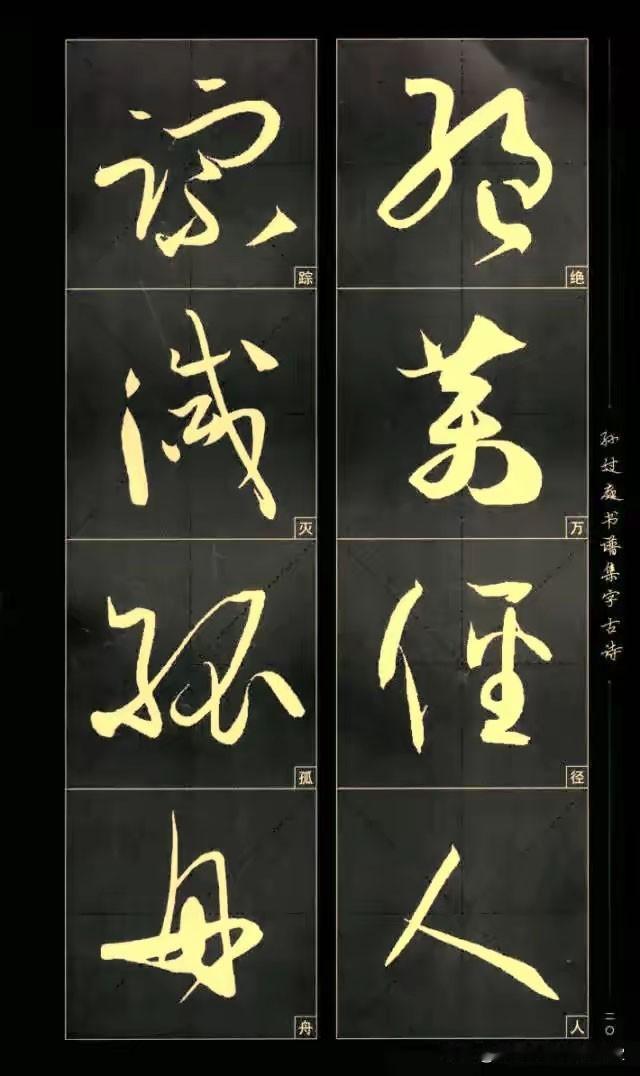 绝万径人
踪灭孤舟
孙过庭书谱集字古诗
二〇